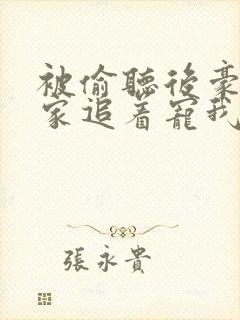 被偷聽後豪
家追着寵我
張永貴